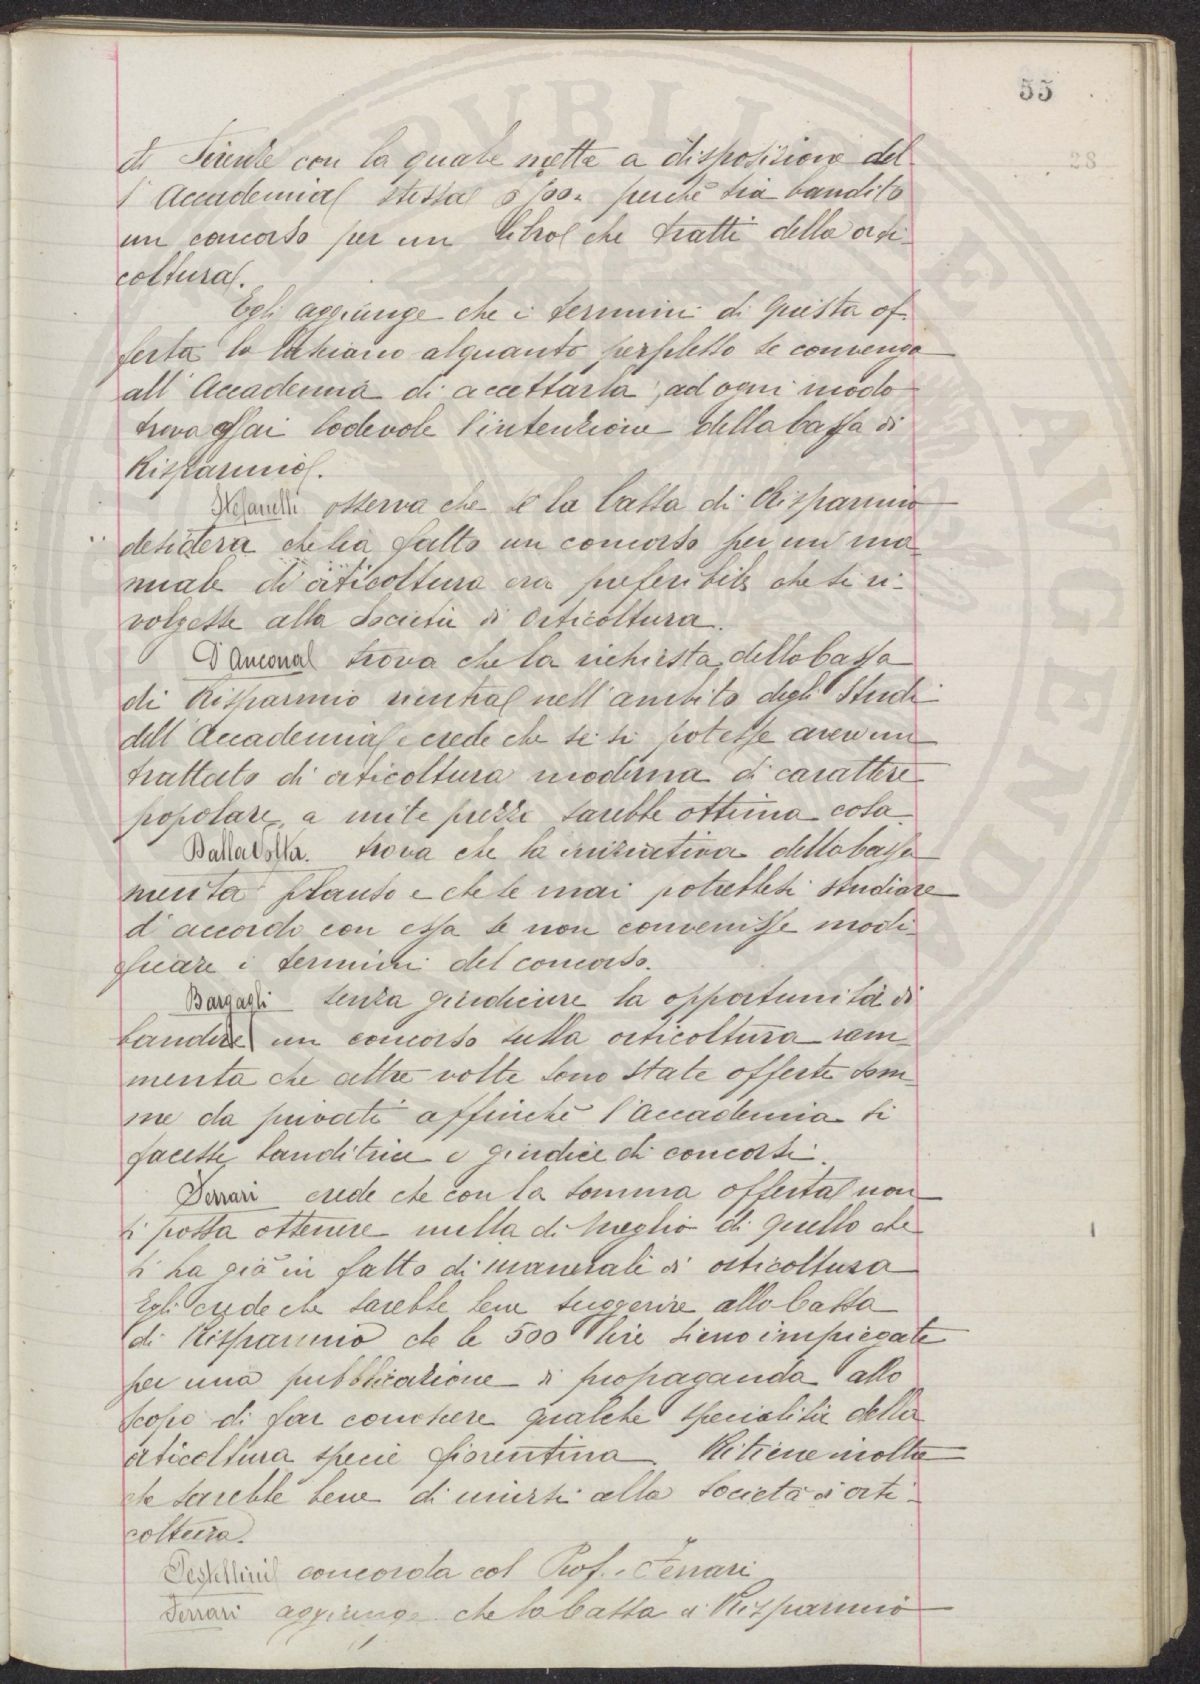 55
28
di Firenze con la quale mette a disposizione del
l'Accademia stessa £ 500 perchè sia bandito
un concorso per un libro che tratti della orti-
coltura.
Egli aggiunge che i termini di questa of-
ferta lo lasciano alquanto perplesso se convenga
all'Accademia di accettarla, ad ogni modo
trova assai lodevole l'intenzione della Cassa di
Risparmio.
Stefanelli osserva che se la Cassa di Risparmio
desidera che sia fatto un concorso per un ma-
nuale di orticoltura era preferibile che si ri-
volgesse alla Società di Orticoltura.
D'Ancona trova che la richiesta della Cassa
di Risparmio rientra nell'ambito degli studi
dell'Accademia e crede che se si potesse avere un
trattato di orticoltura moderna di carattere
popolare, a mite prezzo sarebbe ottima cosa.
Dalla Volta. trova che la iniziativa della Cassa
merita plauso e che se mai potrebbesi studiare
d'accordo con essa se non convenisse modi-
ficare i termini del concorso.
Bargagli senza giudicare la opportunità di
bandire un concorso sulla orticoltura ram-
menta che altre volte sono state offerte som-
me da privati affinchè l'Accademia si
facesse banditrice e giudice di concorsi.
Ferrari crede che con la somma offerta non
si possa ottenere nulla di meglio di quello che
si ha già in fatto di manuali di orticoltura
Egli crede che sarebbe bene suggerire alla Cassa
di Risparmio che le 500 lire sieno impiegate
per una pubblicazione di propaganda allo
scopo di far conoscere qualche specialità della
orticoltura specie fiorentina. Ritiene inoltre
che sarebbe bene di unirsi alla Società di orti-
coltura.
Pestellini concorda col Prof. Ferrari
Ferrari aggiunge che la Cassa di Risparmio